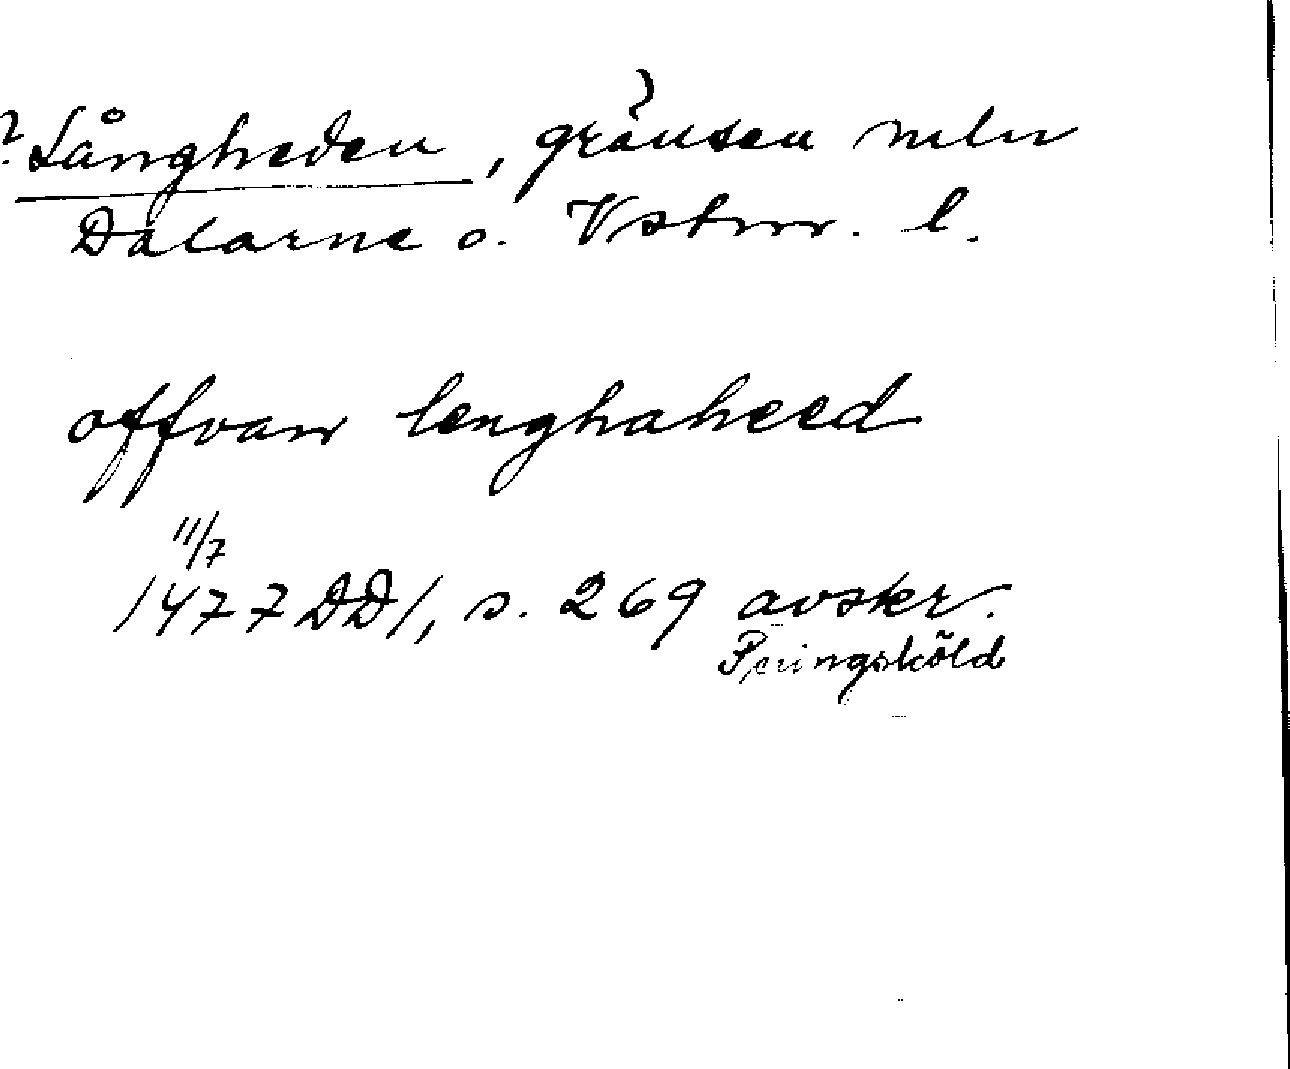 ? Långheden, gränsen mln
Dalarne o. Vstm. l.
offvan lenghaheed
11/7
1477 DD1, s. 269 avskr.
Peringsköld